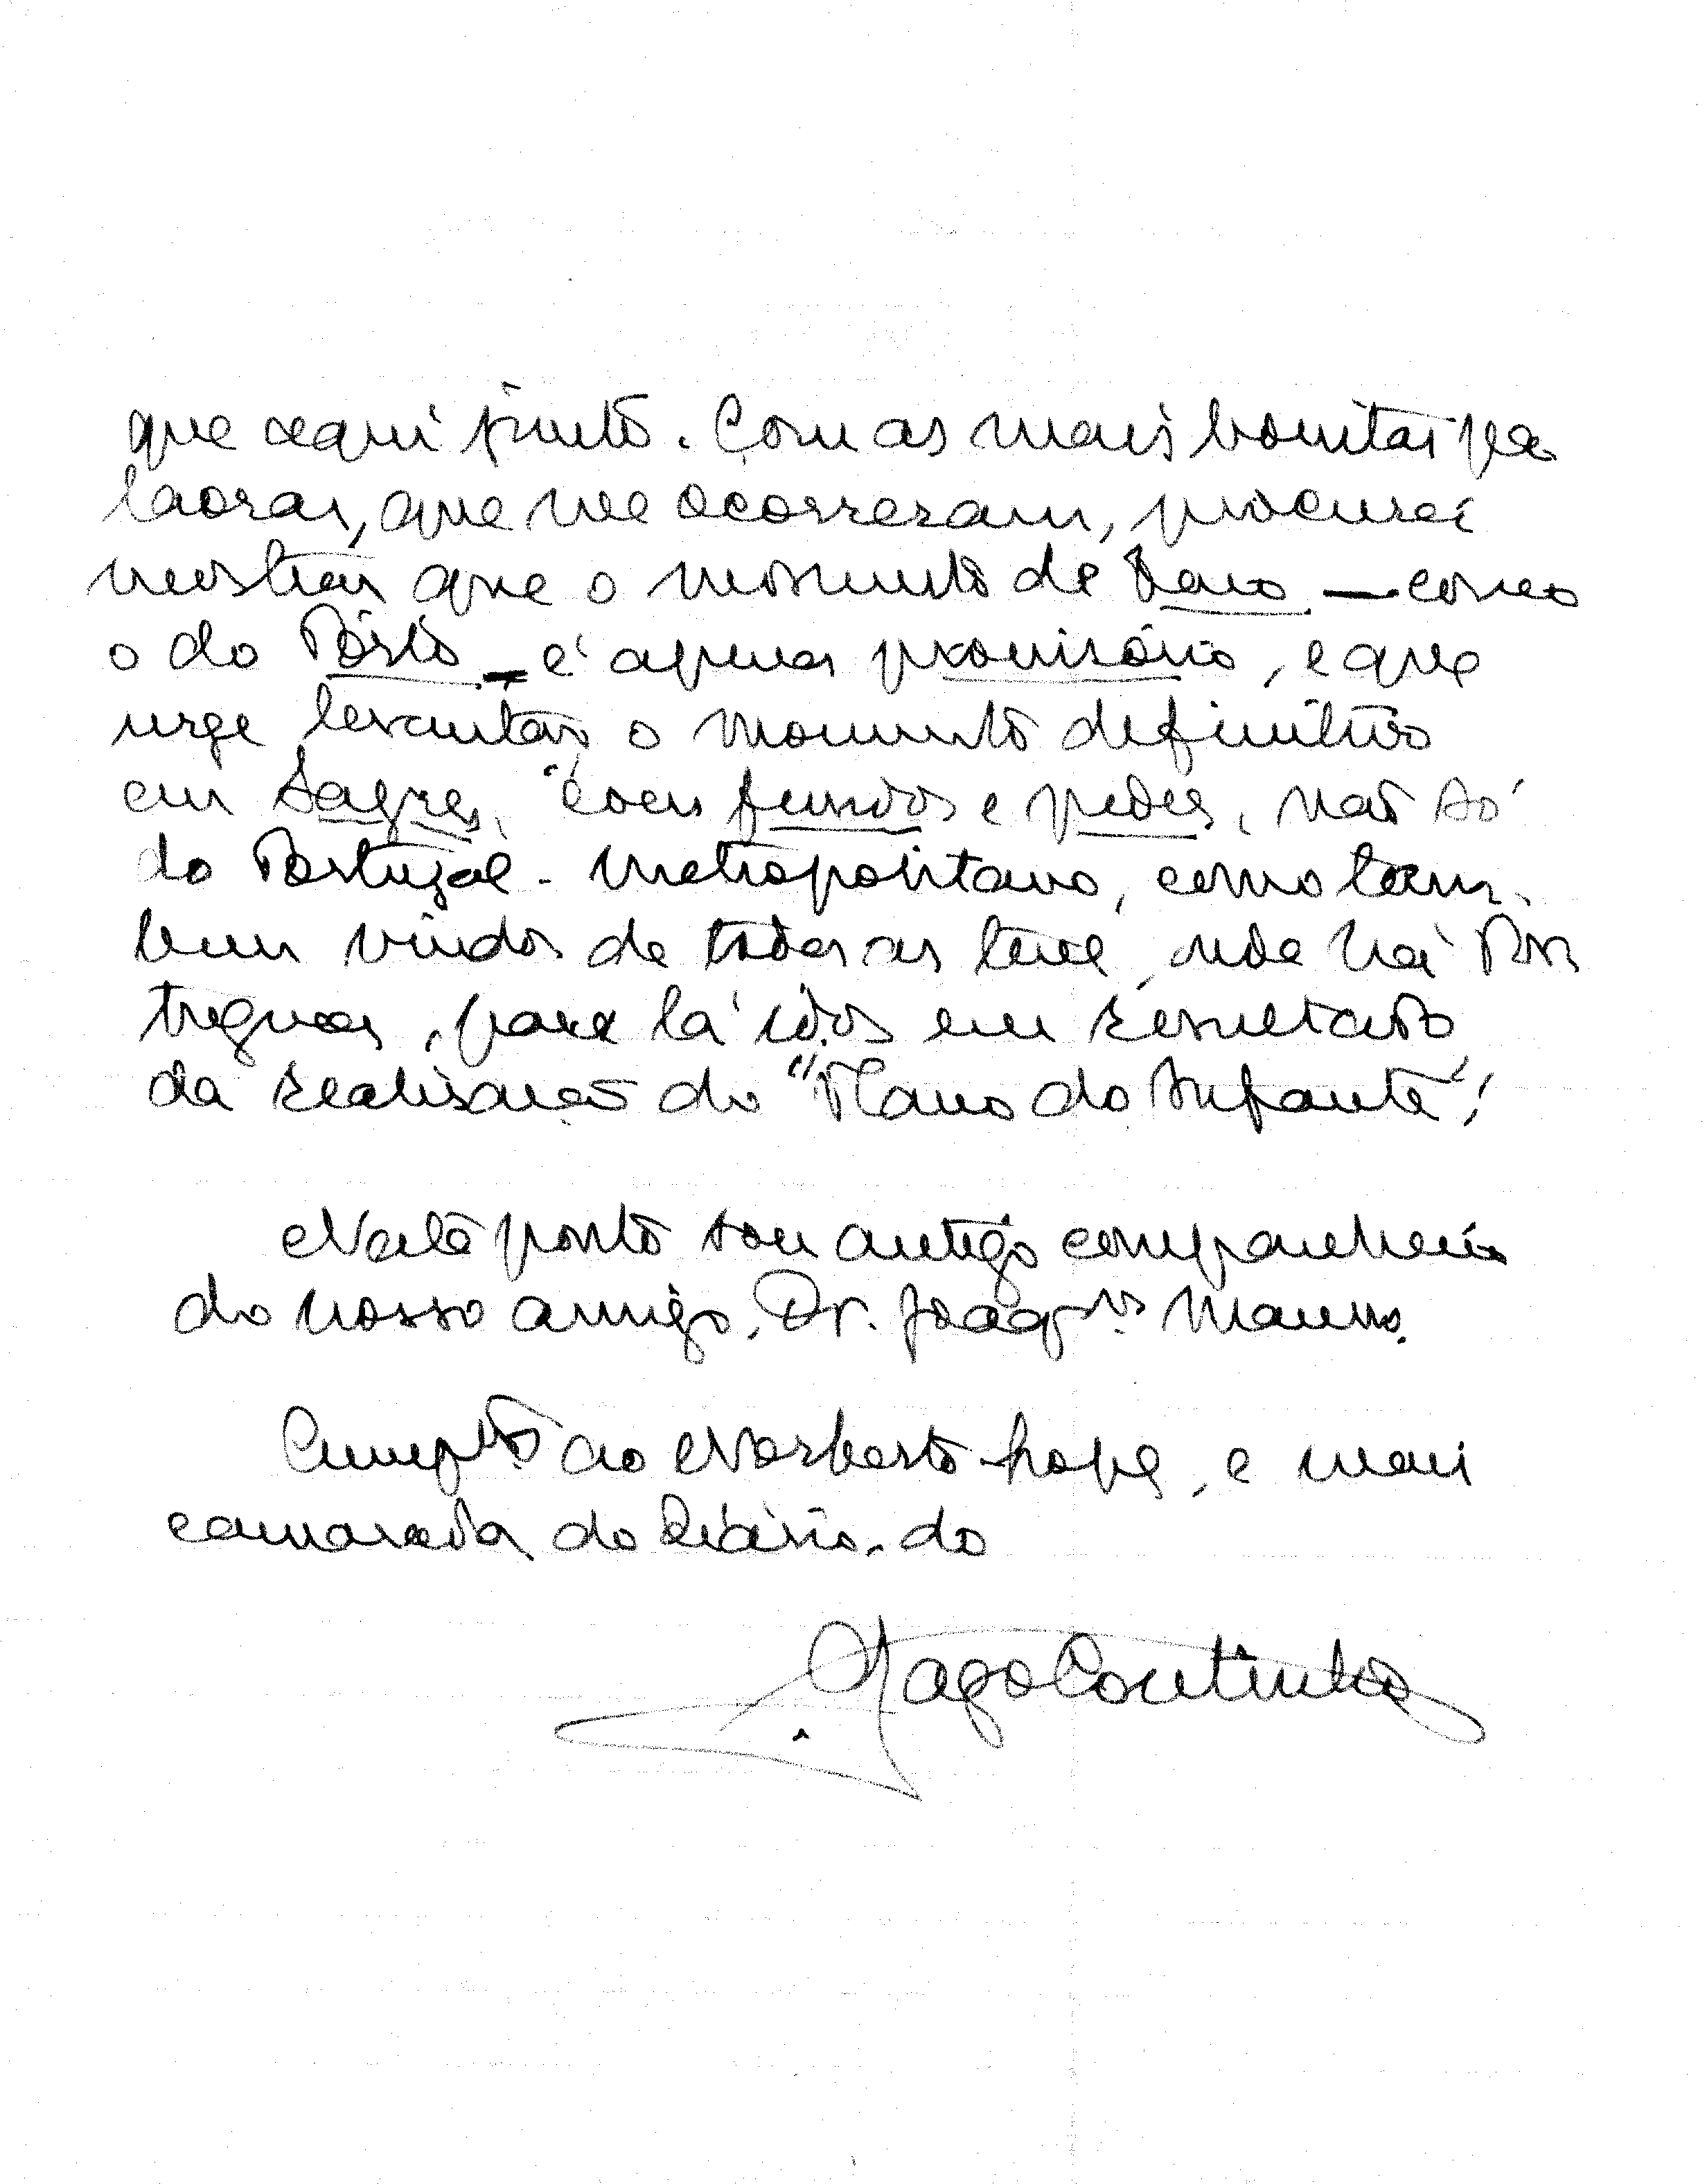 que aqui junto. Com as mais bonitas pa
lavras, que me ocorreram, procurei
mostrar que o monumento de — como
o do Pôrto — é apenas provisório, e que
urge levantar, o monumento definitivo
em Sagres, com fundos e pedras, não só
do Portugal-metropolitano, como tam-
bem vindos de todas as terras, onde há Por
tugueses, para lá idos em resultado
da realisação do "Plano do Infante"!
Neste ponto sou antigo companheiro
do nosso amigo, Dr. Joaqm Manso.
Cumptos ao Norberto Lopes, e mais
camaradas do Diário, do
Gago Coutinho